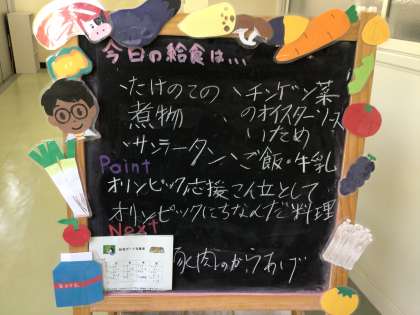 今日の給食は...
・たけのこの煮物
・チンゲン菜のオイスターソースいため
・サンラータン
・ご飯・牛乳
Point
オリンピック応援こん立として
オリンピックにちなんだ料理
Next
豚肉のからあげ